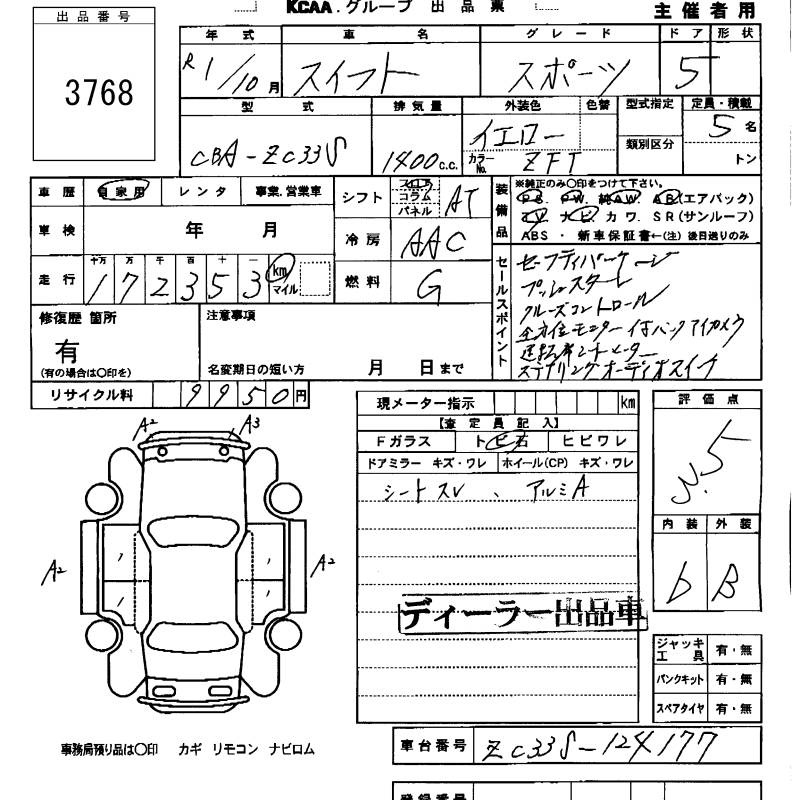 KCAA.グループ 出品票
主催者用
出品番号
3768
年式 車名 グレード ドア 形状
R1/10月 スイフト スポーツ 5
型式 排気量 外装色 色替 型式指定 定員・積載
CBA-ZC33S 1400c.c. イエロー カラーNo. ZFT 類別区分 5名 トン
車歴 自家用 レンタ 事業.営業車
シフト フロア コラム パネル AT
装備品 ※純正のみ〇印をつけて下さい。
P.S. P.W. 純AW. AB(エアバック)
TV ナビ. カワ. SR(サンルーフ)
ABS・新車保証書←(注)後日送りのみ
車検 年 月
冷房 AAC
走行 十万 万 千 百 十 一 172353 km マイル
燃料 G
セールスポイント
セーフティパッケージ
プッシュスタート
クルーズコントロール
全方位モニター付バックアイカメラ
運転席シートヒーター
ステアリングオーディオスイッチ
修復歴 箇所
有
(有の場合は〇印を)
注意事項
名変期日の短い方 月 日まで
リサイクル料 9950円
現メーター指示 km
【査定員記入】
Fガラス トビ石 ヒビワレ
ドアミラー キズ・ワレ ホイール(CP) キズ・ワレ
シートスレ、アルミA
ディーラー出品車
評価点
3.5
内装 外装
b B
A2 A3
A2 A2
ジャッキ工具 有・無
パンクキット 有・無
スペアタイヤ 有・無
事務局預り品は〇印 カギ リモコン ナビロム
車台番号 ZC33S-124177
登録番号